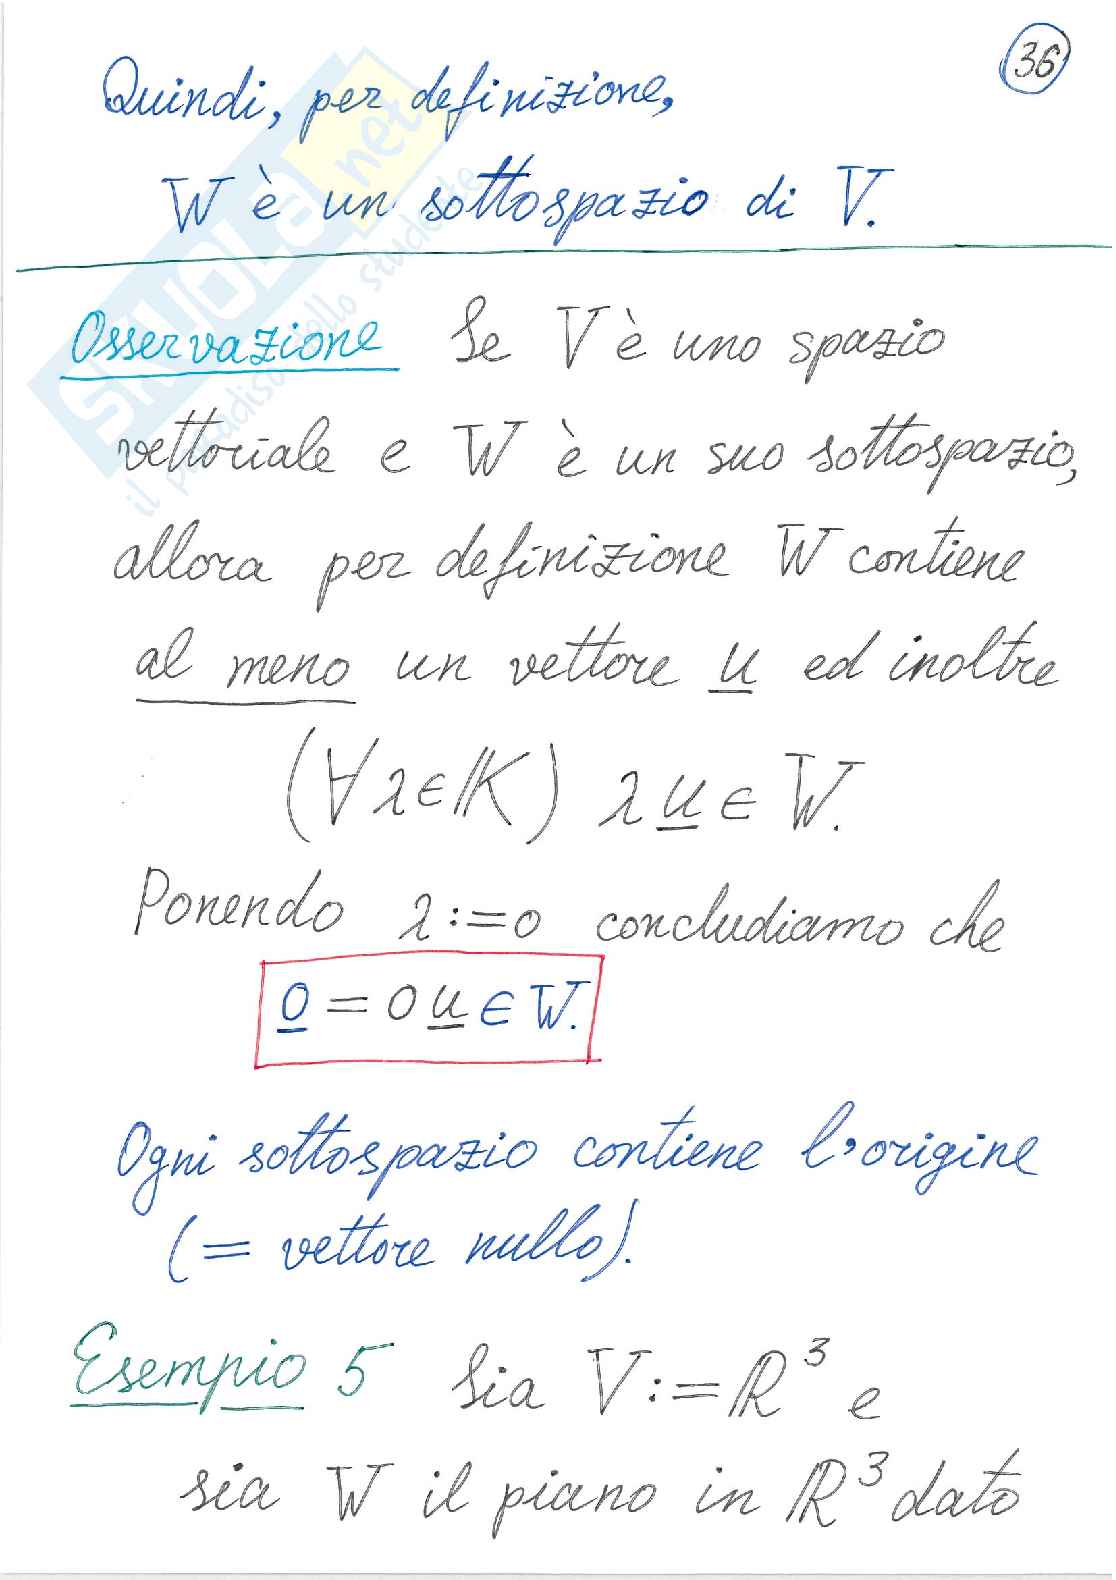 36
Quindi, per definizione,
W è un sottospazio di V.
Osservazione Se V è uno spazio
vettoriale e W è un suo sottospazio,
allora per definizione W contiene
al meno un vettore u ed inoltre
(∀ λ ∈ K) λ u ∈ W.
Ponendo λ := 0 concludiamo che
0 = 0 u ∈ W.
Ogni sottospazio contiene l'origine
(= vettore nullo).
Esempio 5 Sia V := ℝ³ e
sia W il piano in ℝ³ dato
SKUOLA.net
il paradiso dello studente